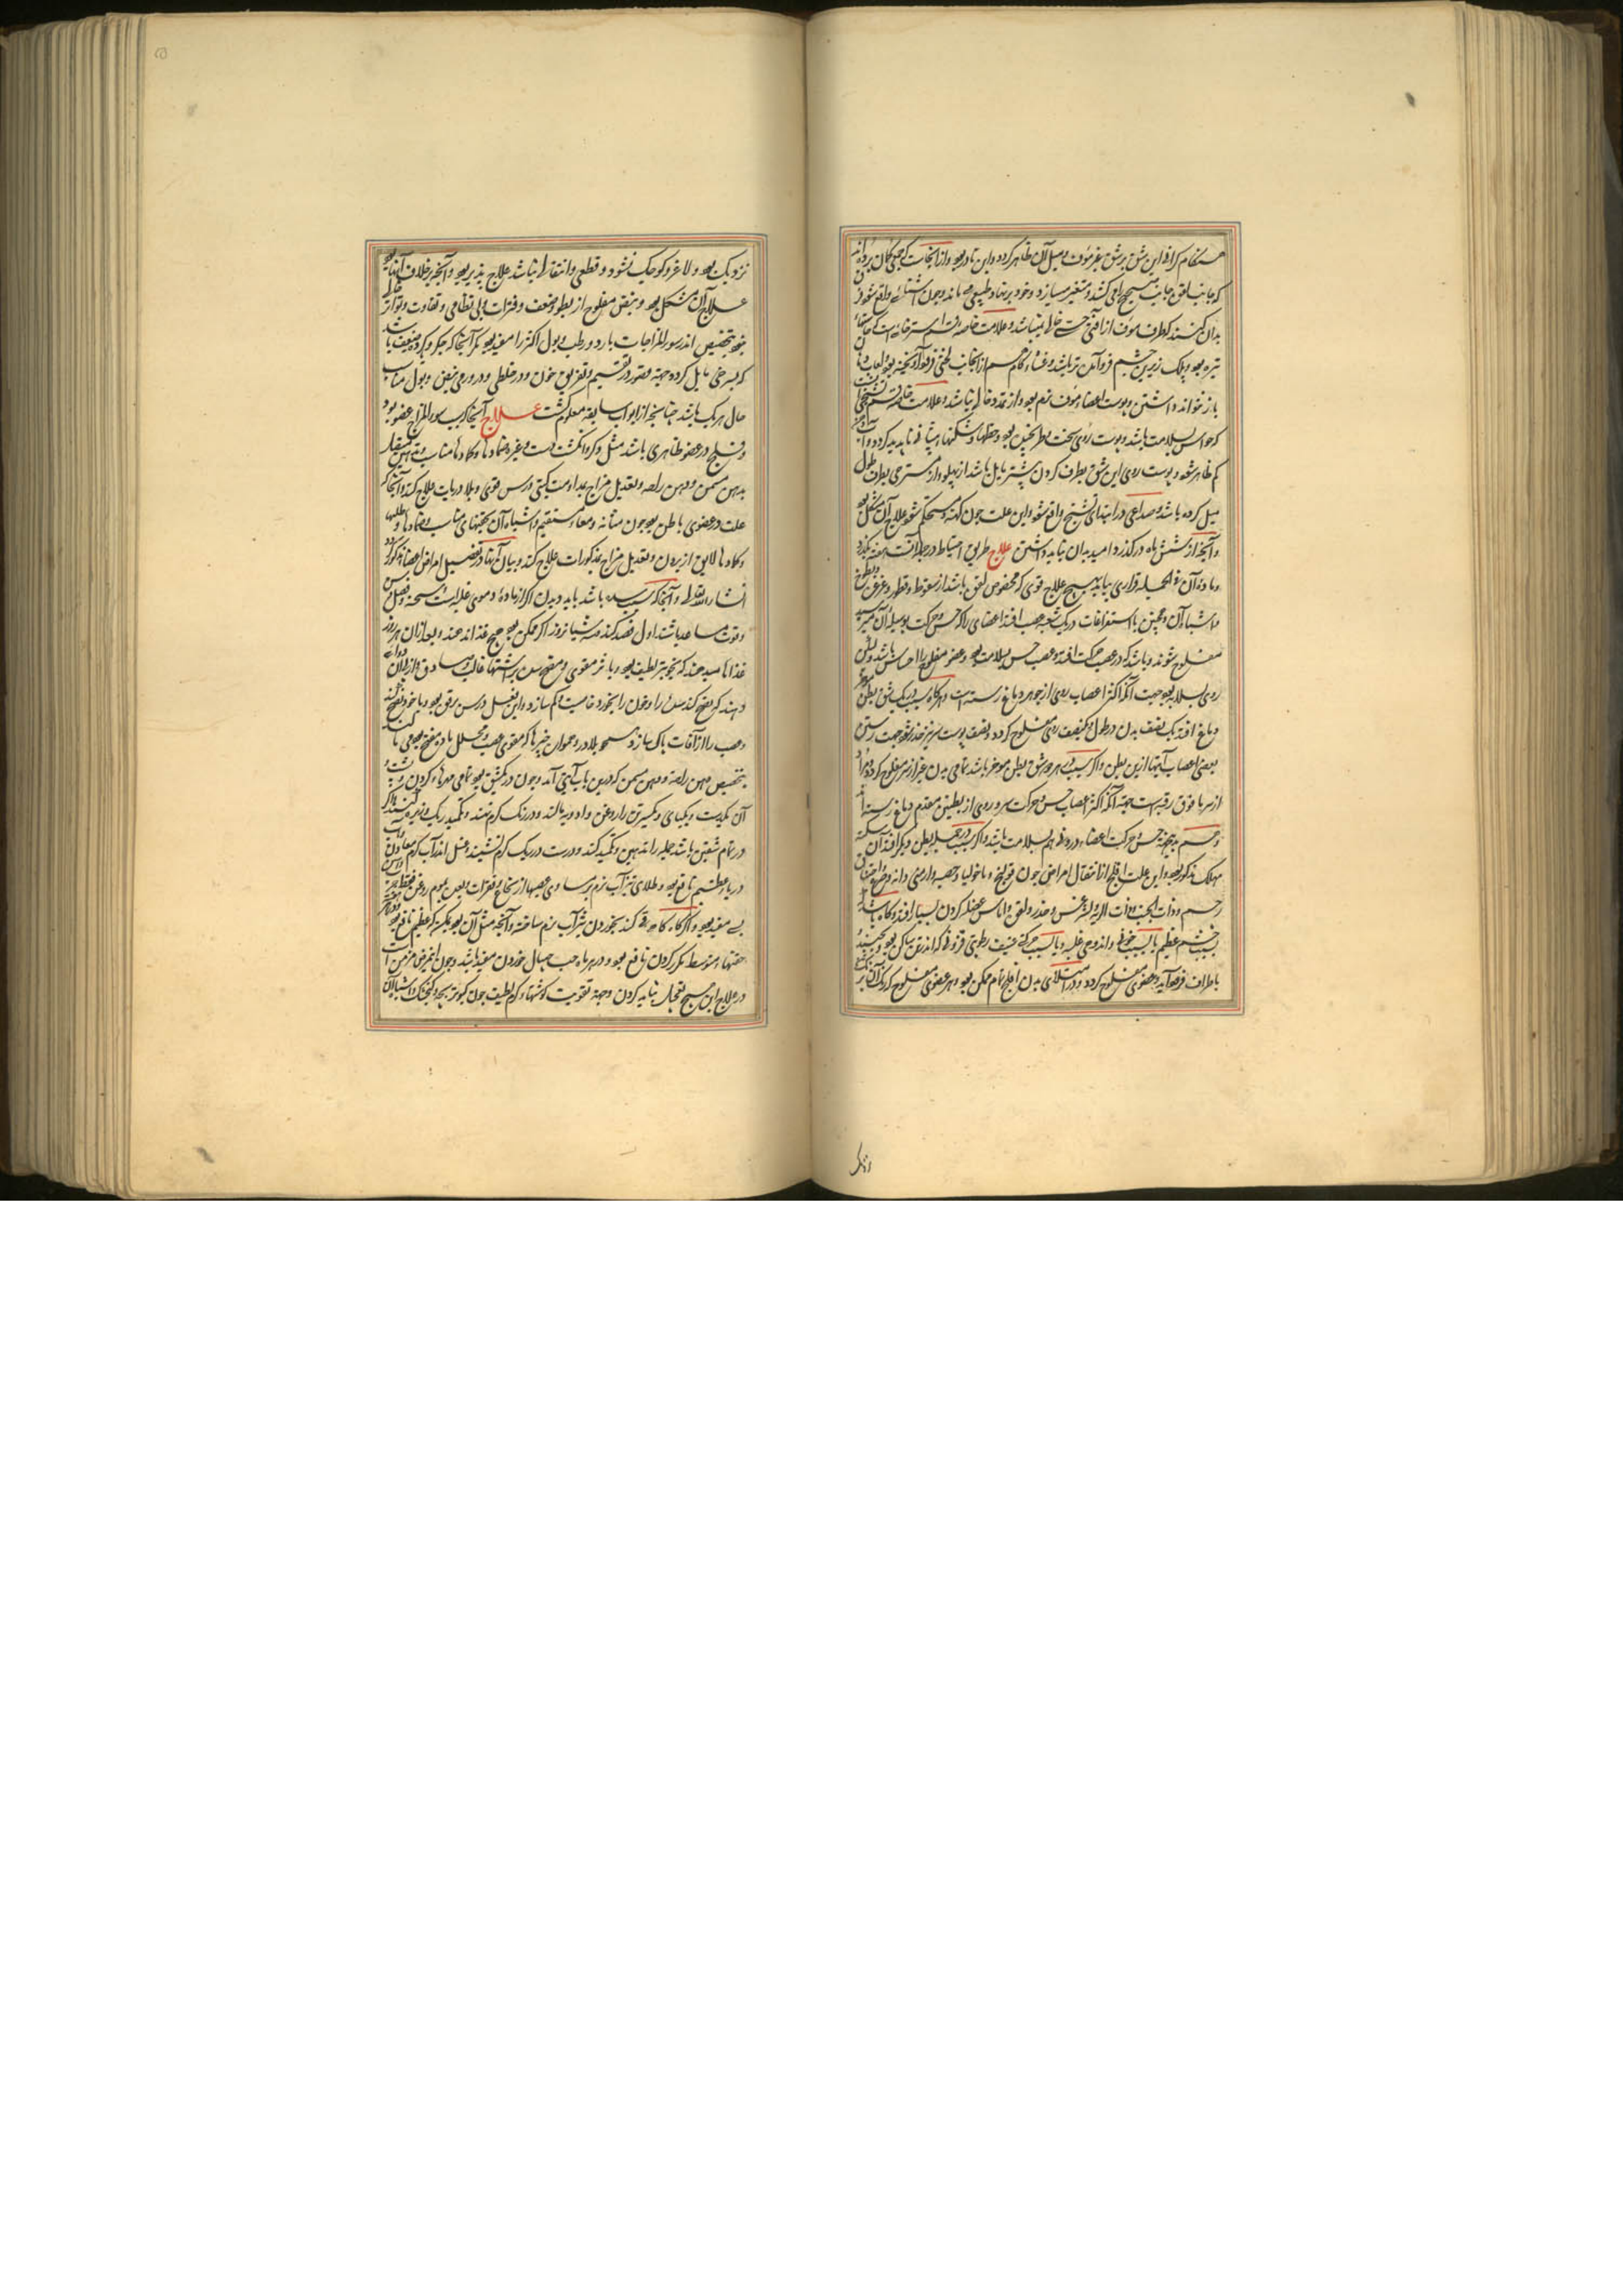 هنگام کرانی این شق برشق غیر مؤف و میل آن ظاهر کردد و این نادر بود و از انجاست که جمعی کمان برده اند
که جانب لقوه جانب صحیح را می کشد و متغیر میسازد و خود بر نهاد طبیعی می ماند و چون
بدان کنند که طرف مؤف از آفتی حسی خالی نباشد و علامت خاصه استرخائی است که حاستها
تیره بود و پلک زیرین چشم فرو آمده باشد و غشاء کام هم از انجانب لختی فرو آویخته بود و لعاب
باز نتواند داشتن و پوست اعضاء مؤف نرم بود و از تمدد خالی باشد و علامت خاصه قسم تشنجی
که حواس بسلامت باشد و پوست روی سخت بود و خطها و شکنها پیشانی ناپدید کردد و
کم ظاهر شود و پوست روی این شق بطرف کردن بیشتر مایل باشد از پهلو و از مسترخی بطرف طول
میل کرده باشد و صداعی در ابتدای تشنج واقع شود و این علت چون کهنه و مستحکم شود علاج آن مشکل بود
و آنچه از شش ماه در کذرد امید به آن نباید داشتن علاج طریق احتیاط در علاج آنست هفته بکذرد
و ماده آن فی الجمله قراری بیابد هیچ علاج قوی که مخصوص لقوه باشد از سعوط و قطور و غرغره
و اشباه آن و همچنین با استفراغات در یک شعبه عصب افتد اعضای را که حس و حرکت بوسیله آن
مفلوج شوند و باشد که در عصب حرکت افتد و عصب حس بسلامت بود و عضو مفلوج را احساس باشد
روی بسلامت بود جهت آنکه اکثر اعصاب روی از جوهر دماغ رسته است و هر کاه سبب در یک شق بطن
دماغ افتد یک نصف بدن در طول و یک نصف روی مفلوج کردد و نصف پوست سر نیز خدر شود جهت رستن
بعضی اعصاب آنها ازین بطن و اکر سبب در هر دو شق بطن مؤخر باشد تمامی بدن غیر از سر مفلوج کردد
از سر تا فوق رقبه است جهت آنکه اکثر اعصاب حس و حرکت سر و روی از بطن مقدم دماغ رسته
حس و حرکت اعضاء درونی هم بسلامت باشد و اکر سبب در جمله بطن دیکر افتد آن سکته
مهلک مذکور بود و این علت از انتقال امراض چون قولنج و ماخولیا و حصبه و
رحم و ذات الجنب و ذات الریه و لیثرغس و خدر و لقوه و اماس عضله کردن بسیار افتد و کاه باشد
بسبب خشم عظیم یا بسبب خوفی و اندوهی غلبه و یا بسبب حرکتی عنیف رطوبتی فرو
باطراف فرود آید و عضوی مفلوج کردد و در استیلای بدن افلج تمام ممکن بود و هر عضوی مفلوج که رنک آن
نزدیک بود و لاغر و کوچک نشود و قطعی و انتقالی نباشد علاج پذیر بود و آنچه بر خلاف آنها بود
علاج آن مشکل بود و نبض مفلوج از بطو و ضعف و فترات و بی نظامی و تفاوت و تواتر خالی
نبود بتخصیص اندر سوء المزاجات بارد و رطب و بول اکثر را سفید بود مکر آنجا که جکر و کرده ضعیف باشد
که بسرخی مایل کردد جهة قصور در تقسیم و تفریق خون و در خلطی و در ورمی نبض و بول مناسب
حال هر یک باشد چنانچه از ابواب سابقه معلوم کشت علاج آنجا که سبب سوء المزاج عضو بود
و فلج در عضو ظاهری باشد مثل ذکر و انکشت دست و غیره ضمادها و کمادها مناسب
بدهن مسخن و دهن راحه و تعدیل مزاج بمداومت کنی و درس قوی و بلادریات علاج کند و آنجا که
علت در عضوی باطن بود چون مثانه و معاء مستقیم و اشباه آن بحقنهای مناسب و ضمادها و طلاها
و کمادها لایق از برون و تعدیل مزاج بمذکورات علاج کند و بیان آنها در تفصیل امراض اعضاء مذکور کردد
انشاء الله تعالی و آنجا که سبب سده باشد باید دیدن اکر از ماده دموی غلبه است و سحنه و فصل و سن
و قوت مساعد باشند اول فصد کنند و سه شبانروز اکر ممکن بود هیچ غذا ندهند و بعد از آن هر روز
غذا نا سیر دهند که بجوهر لطیف بود و باثر مقوی و مفتح سده بر اشتهاء غالب و صادق و ازان
دهند که نضج کند سده را و خون را بخورد خاصیت و کم سازد و این فصل درس قوی بود
و عصب را از آفات پاک سازد و مسخن بلادر و عموما چیزها که مقوی عصب و محلل باد و مفتح بود می
بتخصیص دهن راحه و دهن مسخن کو درین باب آیتی آمد و چون در یک شق بود تمامی مهره‌ء کردن و پشت
آن یک دست و یکپای و یک سرین را روغن و ادویه مالند و در رنک کرم نهند و تکمید ریک و غیره کنند و اکر
در تمام شقین باشد جمله را تدهین و تکمید کند و درست در ریک کرم نشیند و غسل اندر آب کرم معادن
دریا عظیم نافع بود و طلای تیزآب نرم بر مساوی عصبها از نخاع و فقرات
بسی مفید بود و اکر کاه کاه قی کند بخوردن تیزآب نرم ساخته و آنچه مثل آن بود
حقنهاء متوسط مکرر کردن نافع بود و در هر ماه حب حبال خوردن مفید باشد و چون این مرض مزمن است
در علاج این هیچ تعجیل نباید کردن و جهة تقویت کوشتهاء کرم لطیف چون کبوتر بچه و کنجشک و اشباه آن
نزدیک